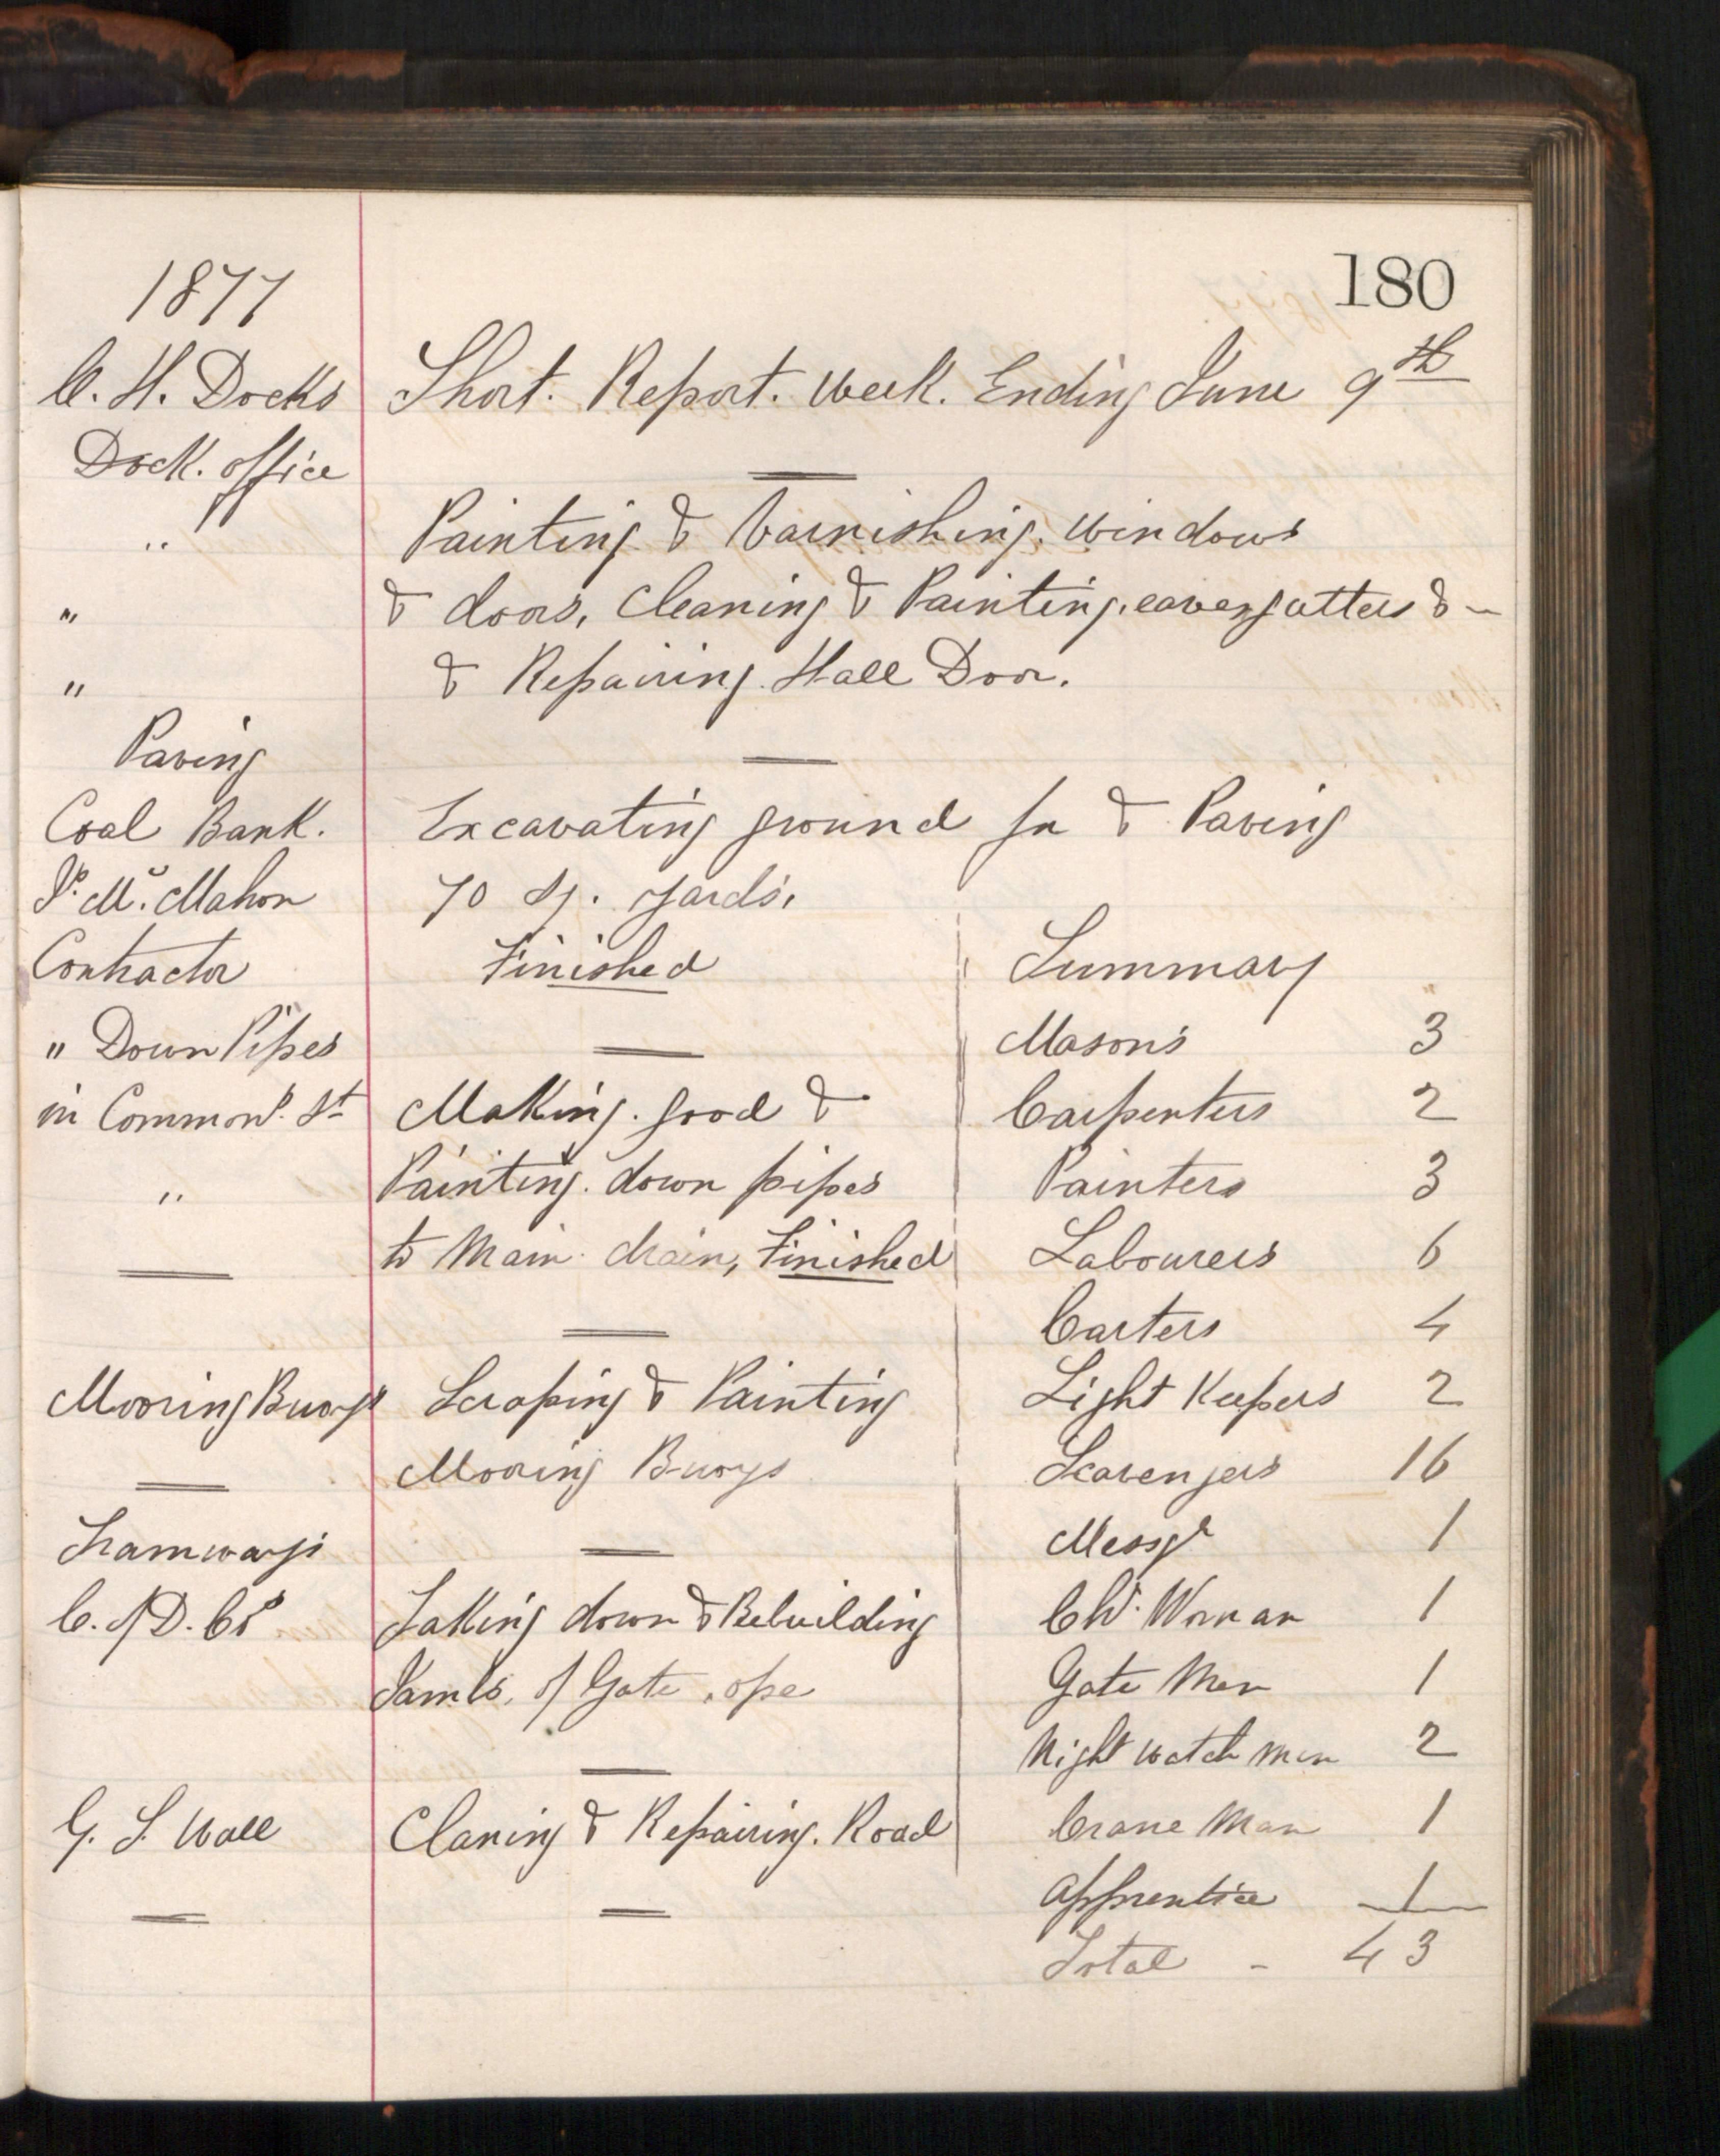 180
1877
C. H. Docks Short. Report. Week. Ending June 9th
Dock. office
" Painting & Varnishing. windows
" & doors, Cleaning & Painting, eaves gutters &
" & Repairing. Hall Door.
Paving
Coal Bank. Excavating ground for & Paving
Mc. Mahon 70 Sq. yards.
Contractor Finished Summary
" Down Pipes Masons 3
in Common St Making. good & Carpenters 2
" Painting. down pipes Painters 3
to Main drain, Finished Labourers 6
Carters 4
Mooring Buoys Scraping & Painting Light Keepers 2
Mooring Buoys Scavengers 16
Tramways Messgr 1
C. of D. Co Taking down & Rebuilding Ch. Woman 1
Jambs. of Gate. ope Gate Man 1
Night watch men 2
G. S. Wall Claning & Repairing. Road Crane Man 1
Apprentice 1
Total - 43